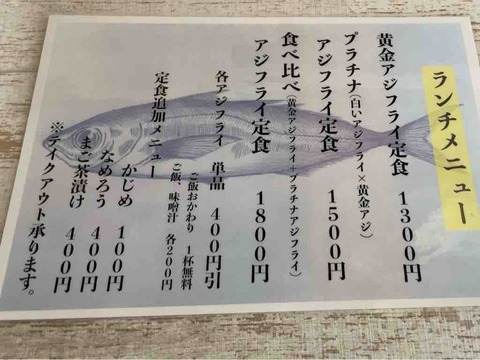 ランチメニュー
黄金アジフライ定食 1300円
プラチナ(白いアジフライ×黄金アジ)
アジフライ定食 1500円
食べ比べ(黄金アジフライ+プラチナアジフライ)
アジフライ定食 1800円
各アジフライ 単品 400円引
ご飯おかわり 1杯無料
定食追加メニュー ご飯、味噌汁 各200円
かじめ 100円
なめろう 400円
まご茶漬け 400円
※テイクアウト承ります。